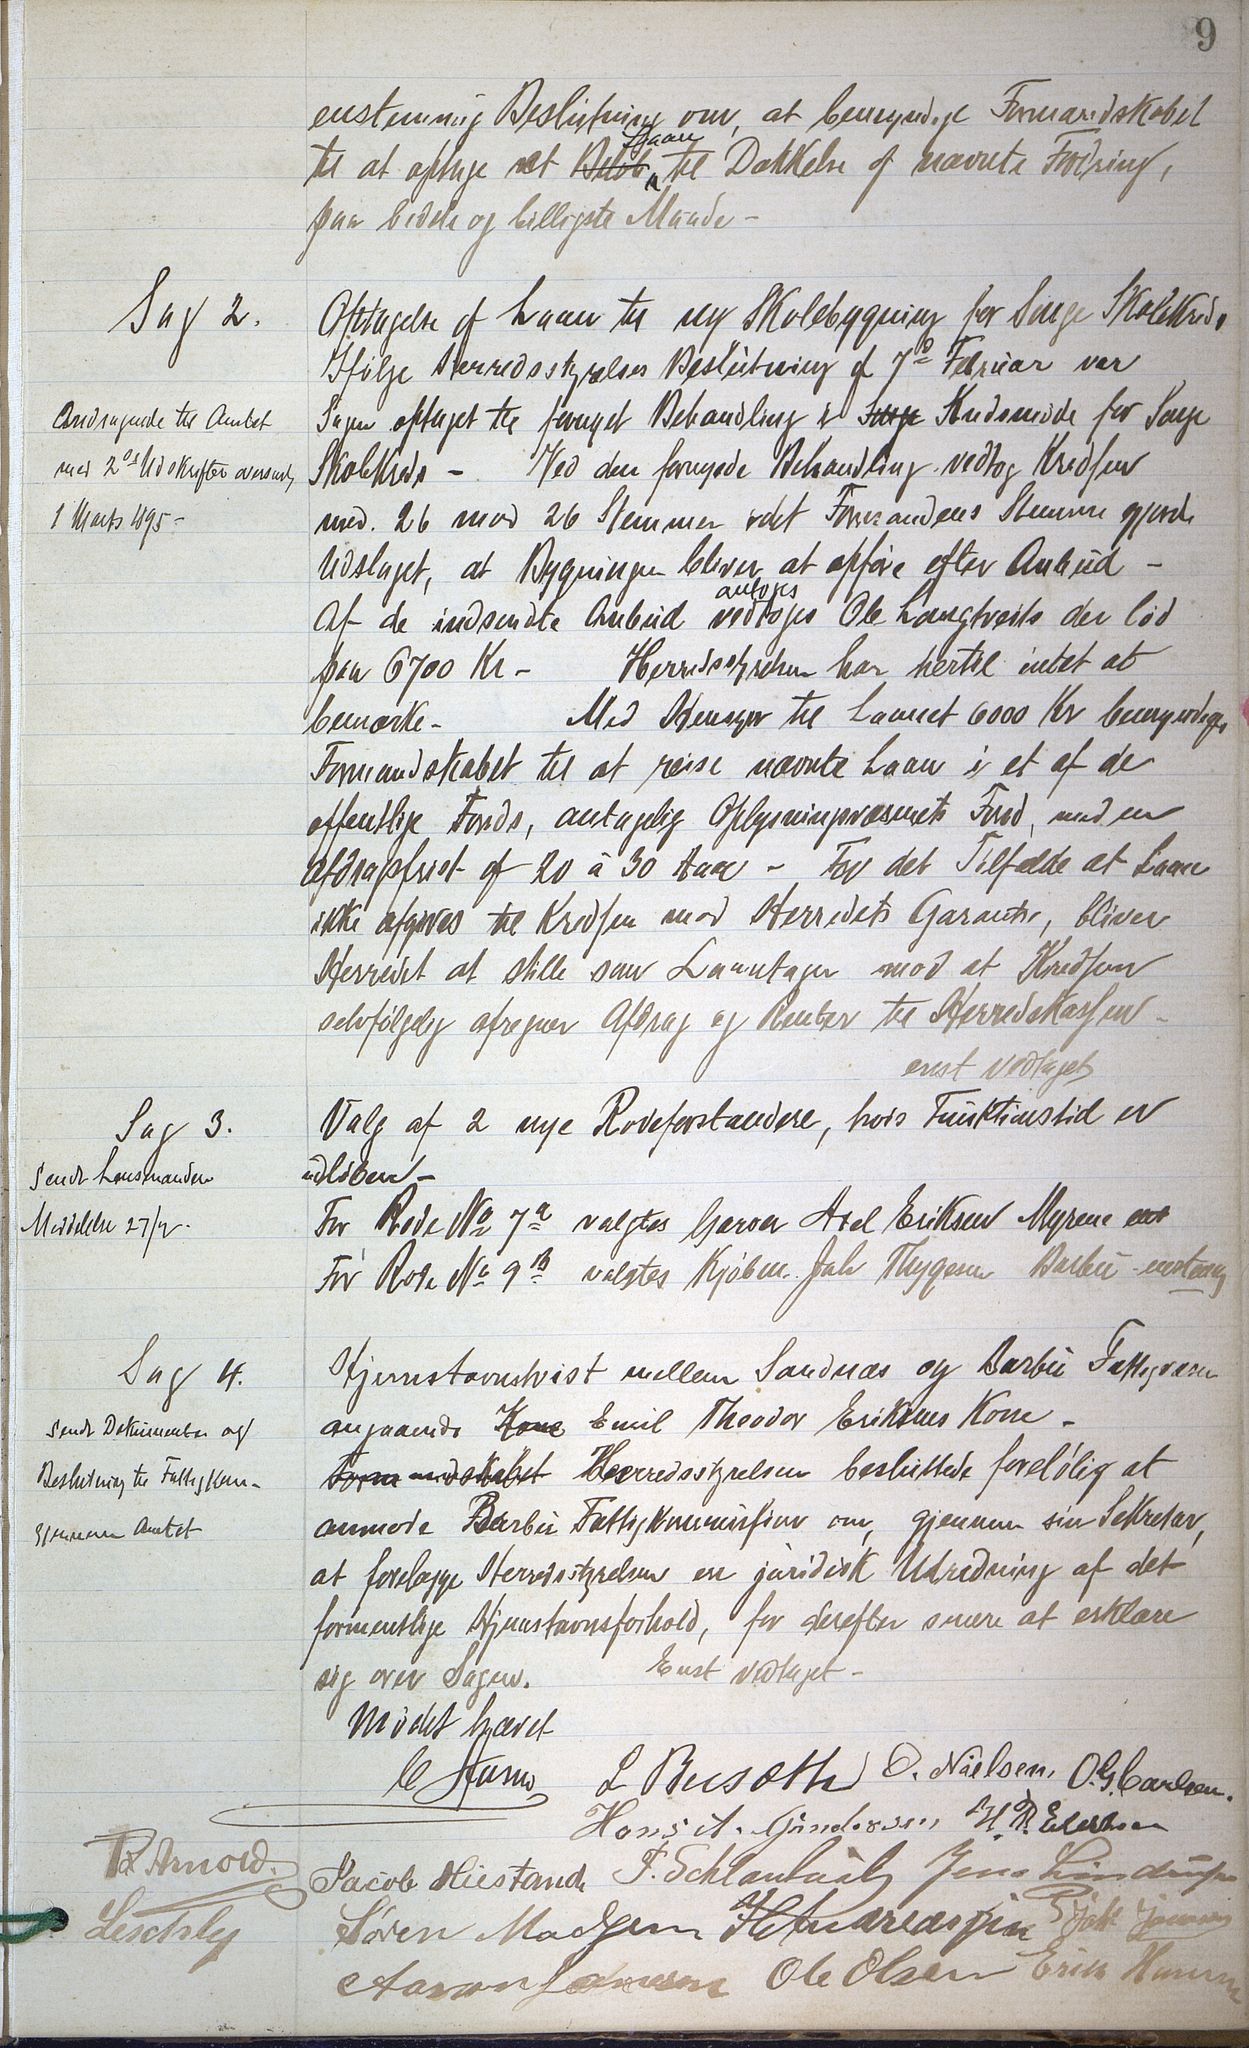 9
enstemmig Beslutning om, at bemyndige Formandskabet
til at optage et Beløb Laan til Dækkelse af nævnte Fordring,
paa bedste og billigste Maade –
Sag 2.
Optagelse af Laan til ny Skolebygning for Songe Skolekreds.
Ifølge Herredsstyrelsens Beslutning af 7de Februar var
Sagen optaget til fornyet Behandling i Songe Kredsmøde for Songe
Skolekreds – Ved den fornyede Behandling vedtog Kredsen
med 26 mod 26 Stemmer idet Formandens Stemme gjorde
Udslaget, at Bygningen bliver at opføre efter Anbud –
Af de indsendte Anbud vedtoges antoges Ole Langtveits der lød
paa 6700 Kr – Herredsstyrelsen har hertil intet at
bemærke – Med Hensyn til Laanet 6000 Kr bemyndiges
Formandskabet til at reise nævnte Laan i et af de
offentlige Fonds, antagelig Oplysningsvæsenets Fond, med en
Afdragsfrist af 20 à 30 Aar – For det Tilfælde at Laan
ikke afgives til Kredsen mod Herredets Garanti, bliver
Herredet at stille som Laantager mod at Kredsen
selvfølgelig afregner Afdrag og Renter til Herredskassen –
enst vedtaget
Andragende til Amtet
med 2de Udskrifter oversendt
1 Marts 1895 –
Sag 3.
Valg af 2 nye Rodeforstandere, hvis Funktionstid er
udløben –
For Rode No 7a valgtes Garver Axel Eriksen Myrene
For Rode No 9B valgtes Kjøbm. Joh Thygesen Barbu – enstemig
Sendt Lensmanden
Meddelelse 27/2
Sag 4.
Hjemstavnstvist mellem Sandnæs og Barbu Fattigvæsen
angaaende Kone Emil Theodor Eriksens Kone –
Formandskabet Herredsstyrelsen besluttede foreløbig at
anmode Barbu Fattigkommission om, gjennem sin Sekretær,
at forelægge Herredsstyrelsen en juridisk Udredning af det
formentlige Hjemstavnsforhold, for derefter senere at erklære
sig over Sagen. Enst vedtaget –
Sendt Dokumenter og
Beslutning til Fattigkom–
gjennem Amtet
Mødet hævet
L Busoth O. Nielsen. O.G. Carlsen.
Hans A. Gundersen
B Arnold. Jacob Hiestand Jens
Søren Madsen H Andreassen
Aanon Ole Olsen Erik Hansen